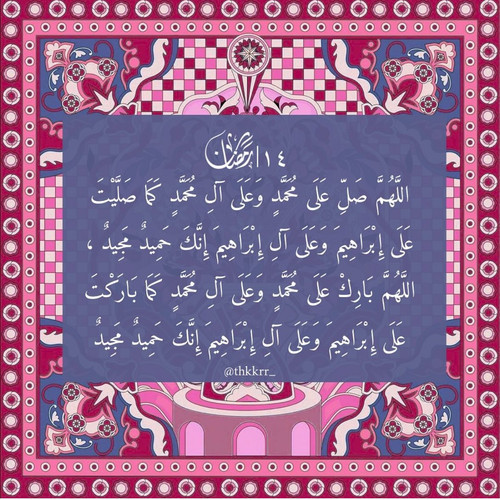 ١٤ | رمضان
اللَّهُمَّ صَلِّ عَلَى مُحَمَّدٍ وَعَلَى آلِ مُحَمَّدٍ كَمَا صَلَّيْتَ
عَلَى إِبْرَاهِيمَ وَعَلَى آلِ إِبْرَاهِيمَ إِنَّكَ حَمِيدٌ مَجِيدٌ ،
اللَّهُمَّ بَارِكْ عَلَى مُحَمَّدٍ وَعَلَى آلِ مُحَمَّدٍ كَمَا بَارَكْتَ
عَلَى إِبْرَاهِيمَ وَعَلَى آلِ إِبْرَاهِيمَ إِنَّكَ حَمِيدٌ مَجِيدٌ
@thkkrr_